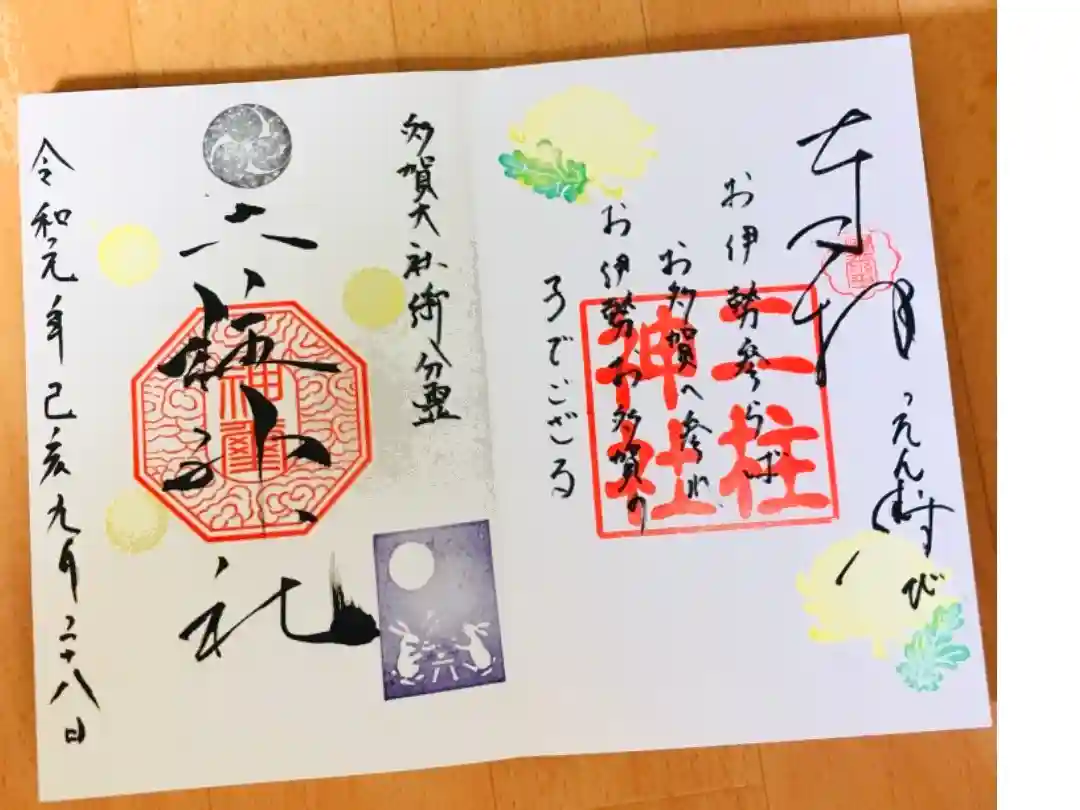 奉拝
えん結び
お伊勢参らば
お多賀へ参れ
お伊勢お多賀の
子でござる
二柱
神社
多賀大社御分霊
神社
令和元年己亥九月二十八日